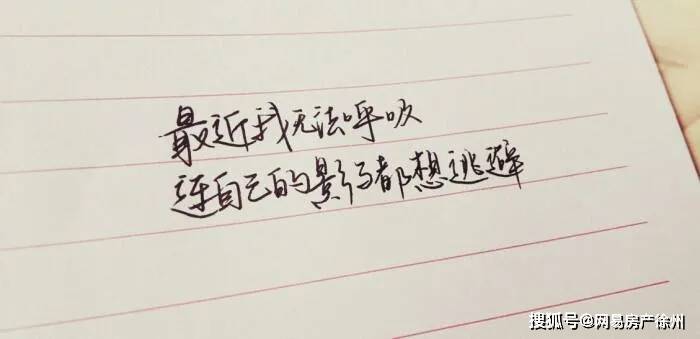 最近我无法呼吸
连自己的影子都想逃避
搜狐号@网易房产徐州